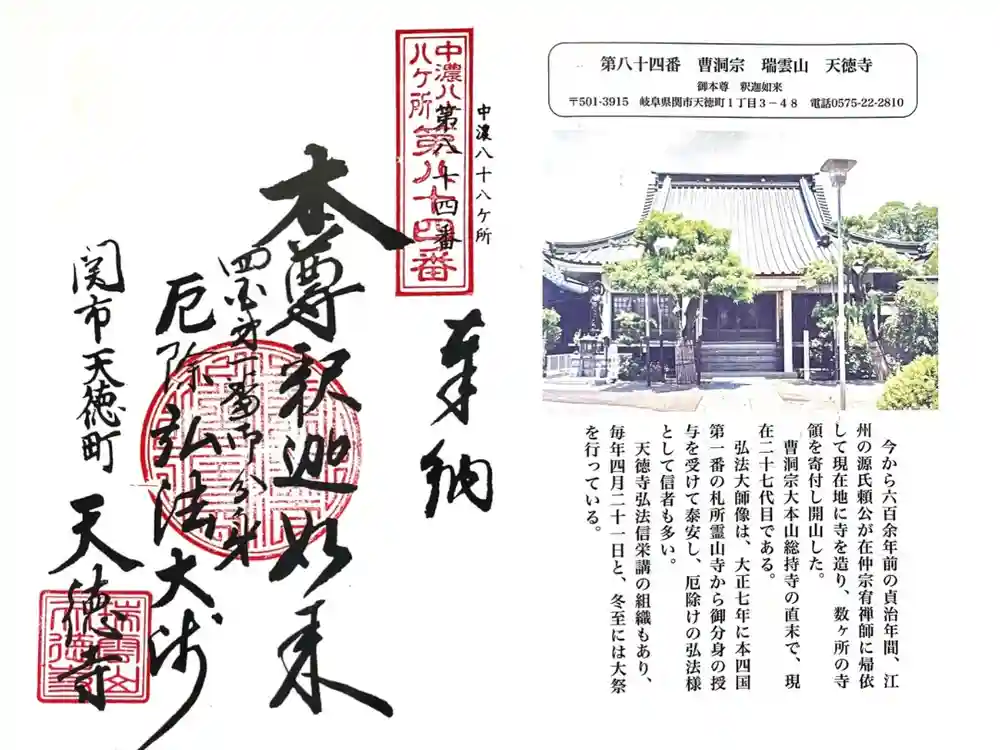 第八十四番　曹洞宗　瑞雲山　天徳寺
御本尊　釈迦如来
〒501-3915　岐阜県関市天徳町1丁目3－48　電話0575-22-2810
今から六百余年前の貞治年間、江
州の源氏頼公が在仲宗宥禅師に帰依
して現在地に寺を造り、数ヶ所の寺
領を寄付し開山した。
曹洞宗大本山総持寺の直末で、現
在二十七代目である。
弘法大師像は、大正七年に本四国
第一番の札所霊山寺から御分身の授
与を受けて泰安し、厄除けの弘法様
として信者も多い。
天徳寺弘法信栄講の組織もあり、
毎年四月二十一日と、冬至には大祭
を行っている。
中濃八十八ケ所
第八十四番
中濃八
八ケ所
第八十四番
奉納
本尊釈迦如来
四国第一番御分身
厄除弘法大師
関市天徳町
天徳寺
瑞雲山
天徳寺